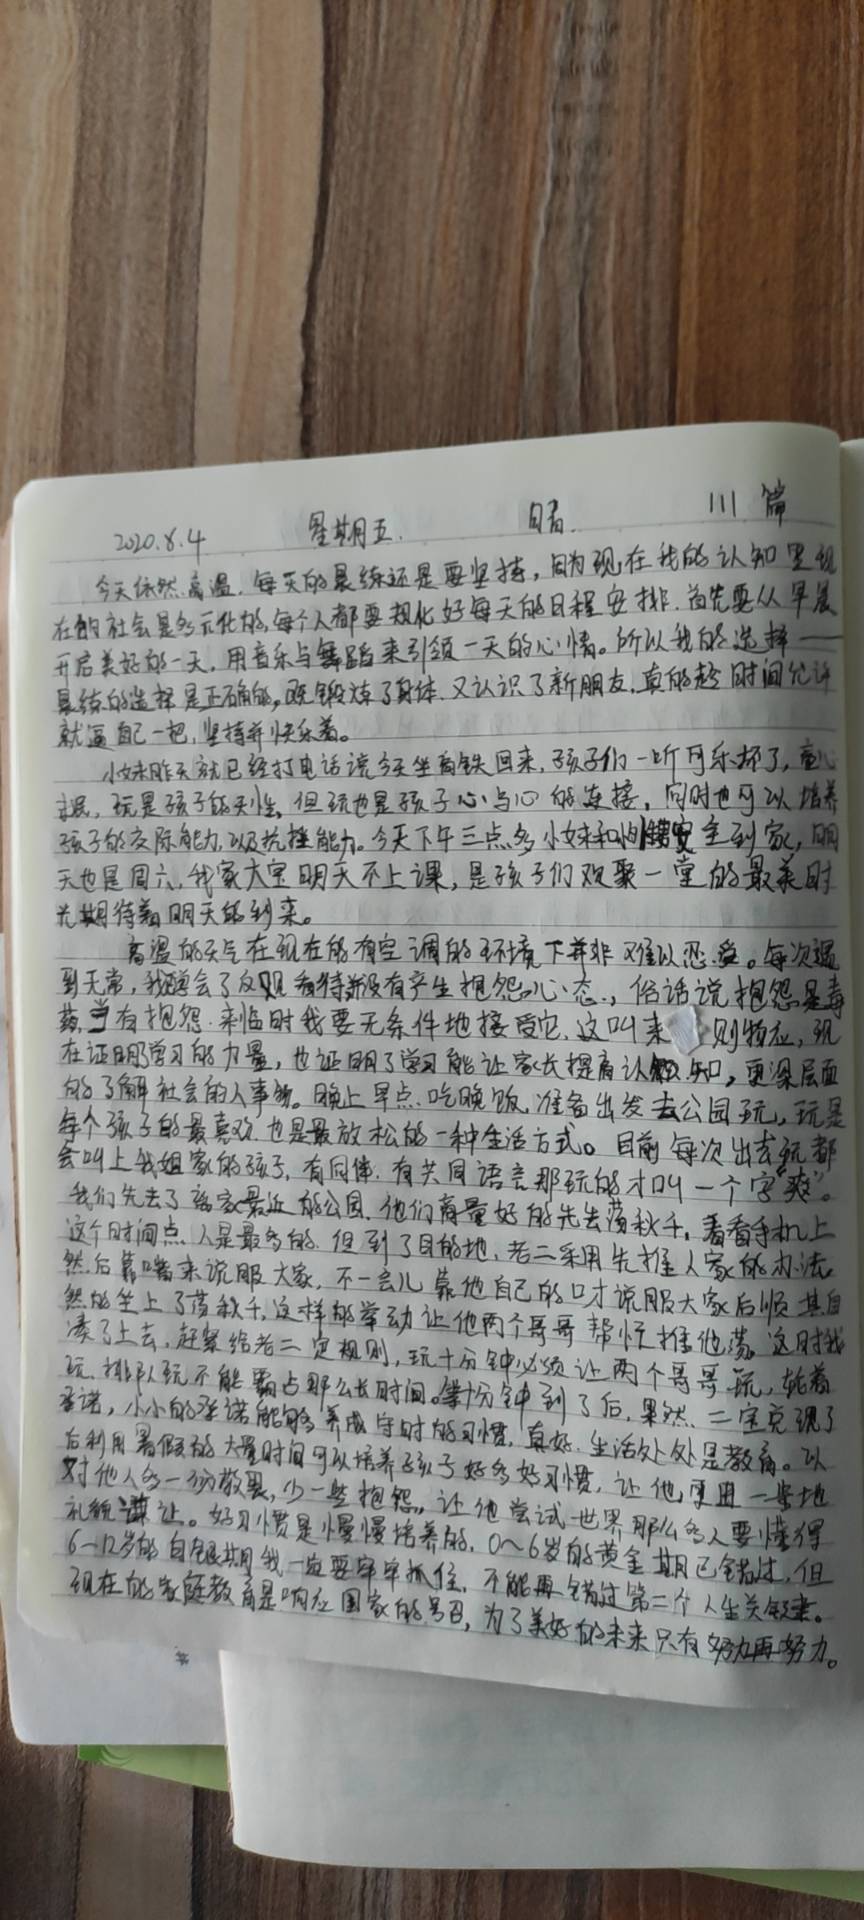 2020.8.4 星期五. 晴. 111篇
今天依然高温.每天的晨练还是要坚持,因为现在我的认知里现
在的社会是多元化的,每个人都要规化好每天的日程安排.首先要从早晨
开启美好的一天,用音乐与舞蹈来引领一天的心情。所以我的选择——
晨练的选择是正确的,既锻炼了身体.又认识了新朋友.真的趁时间允许
就逼自己一把,坚持并快乐着。
小妹昨天就已经打电话说今天坐高铁回来,孩子们一听可乐坏了,童心
玩是孩子的天性,但玩也是孩子心与心的连接,同时也可以培养
孩子的交际能力,以及抗挫能力。今天下午三点多小妹和 安全到家,明
天也是周六,我家大宝明天不上课,是孩子们欢聚一堂的最美时
光期待着明天的到来。
高温的天气在现在的有空调的环境下并非难以忍受。每次遇
到无常,我学会了反观看待并没有产生抱怨心态.,俗话说抱怨是毒
药,当有抱怨.来临时我要无条件地接受它.这叫来 则物应,现
在证明了学习的力量,也证明了学习能让家长提高认知,更深层面
的了解社会的人事物。晚上早点.吃晚饭.准备出发去公园玩,玩是
每个孩子的最喜欢.也是最放松的一种生活方式。目前每次出去玩都
会叫上我姐家的孩子,有同伴.有共同语言那玩的才叫一个字“爽”。
我们先去了离家最近的公园.他们商量好的先去荡秋千,看看手机上
这个时间点.人是最多的.但到了目的地,老二采用先推人家的办法
然后靠嘴来说服大家,不一会儿靠他自己的口才说服大家后顺其自
然的坐上了荡秋千,这样的举动让他两个哥哥帮忙推他荡。这时我
凑了上去,赶紧给老二定规则,玩十分钟必须让两个哥哥玩,轮着
玩.排队玩不能霸占那么长时间。等十分钟到了后,果然.二宝兑现了
承诺,小小的承诺能够养成守时的习惯,真好.生活处处是教育。以
后利用暑假的大量时间可以培养孩子好多好习惯,让他更进一步地
对他人多一份敬畏,少一些抱怨,让他尝试世界那么多人要懂得
礼貌谦让。好习惯是慢慢培养的.0~6岁的黄金期已错过,但
6~12岁的白银期我一定要牢牢抓住,不能再错过第二个人生关键。
现在的家庭教育是响应国家的号召,为了美好的未来只有努力再努力。